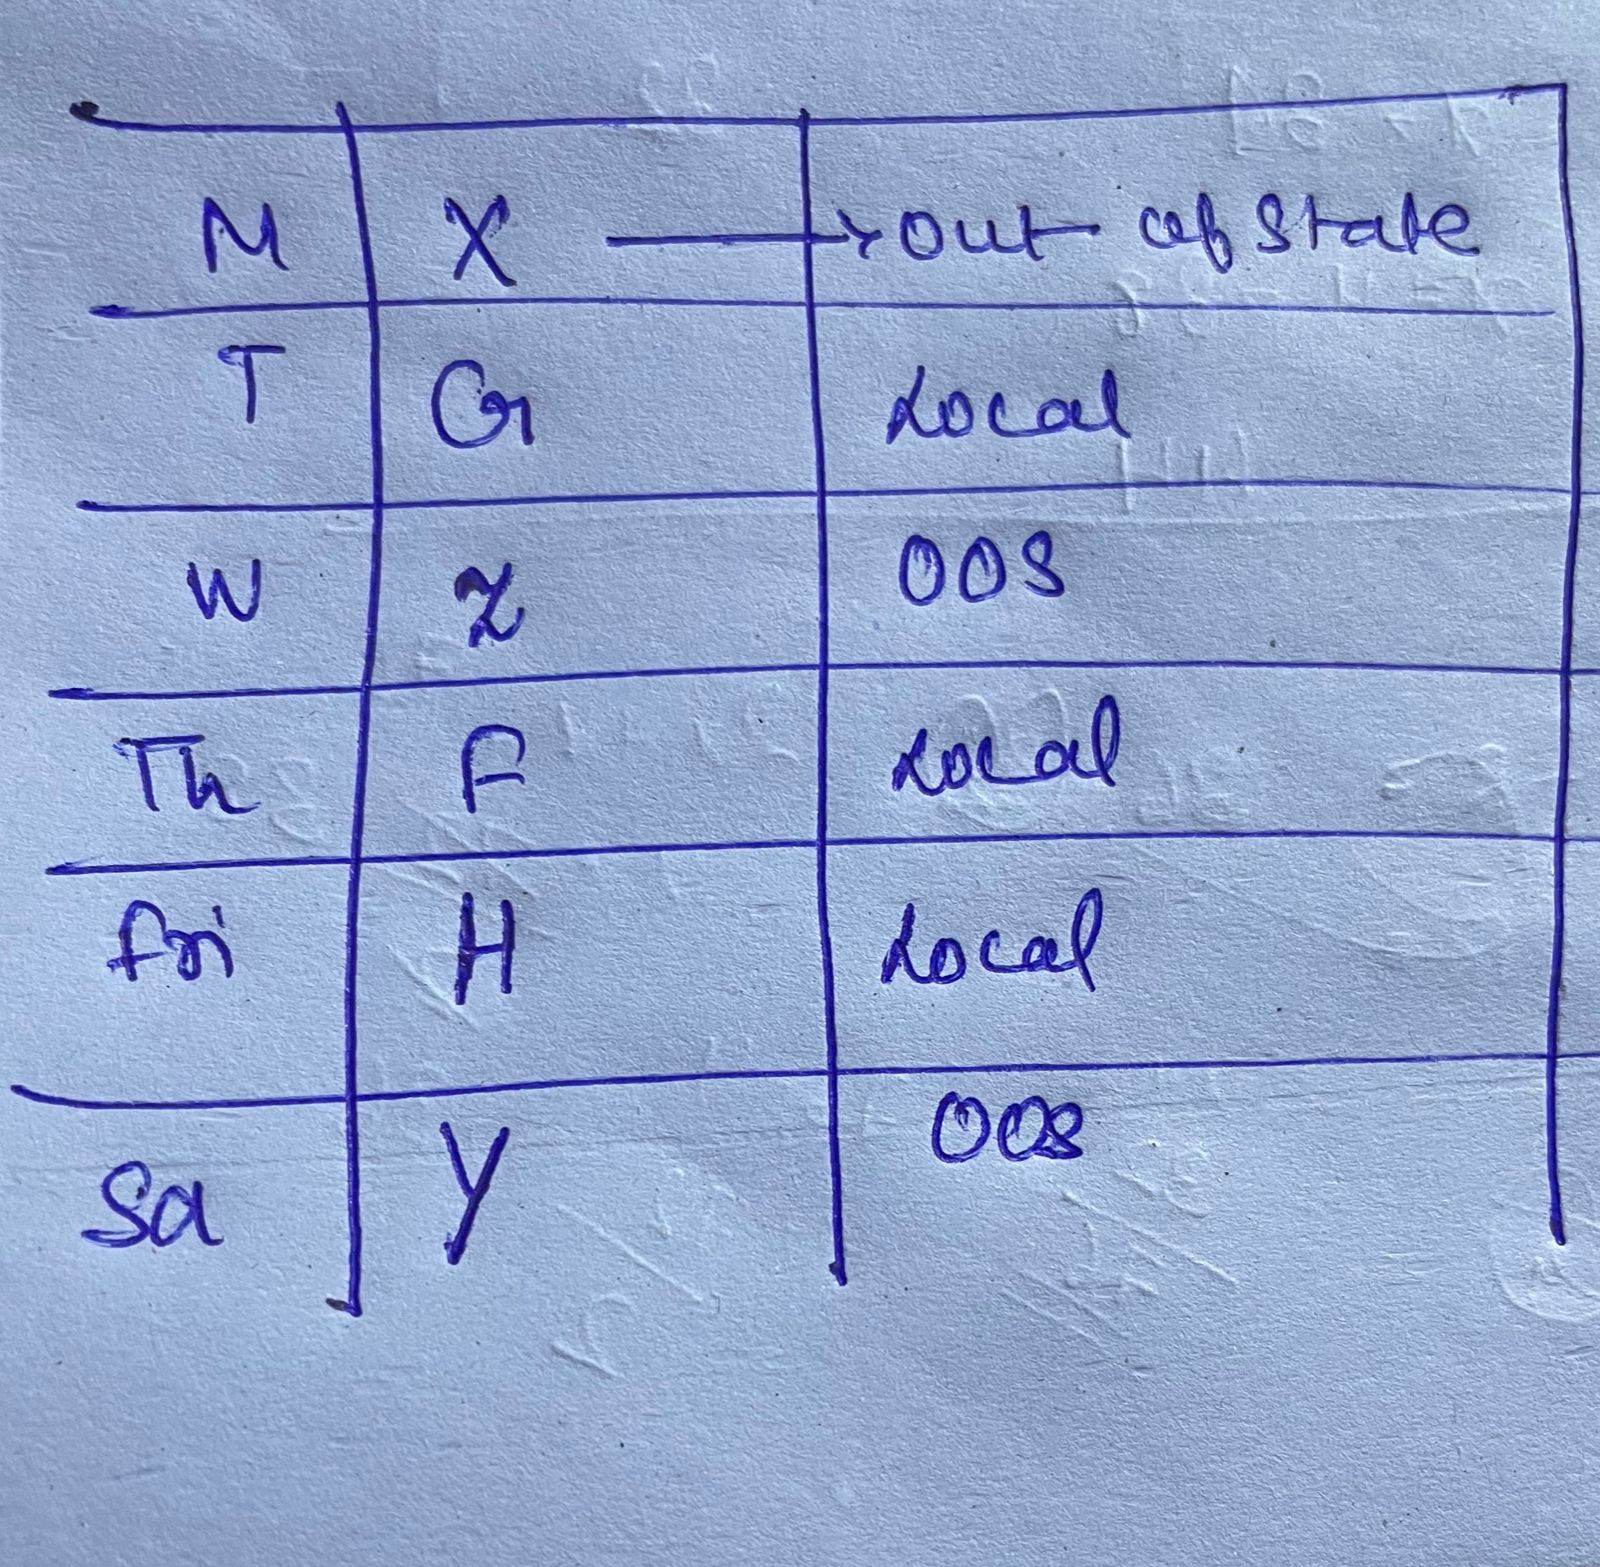 M X → Out of State
T G Local
W Z OOS
Th F Local
Fri H Local
Sa Y OOS